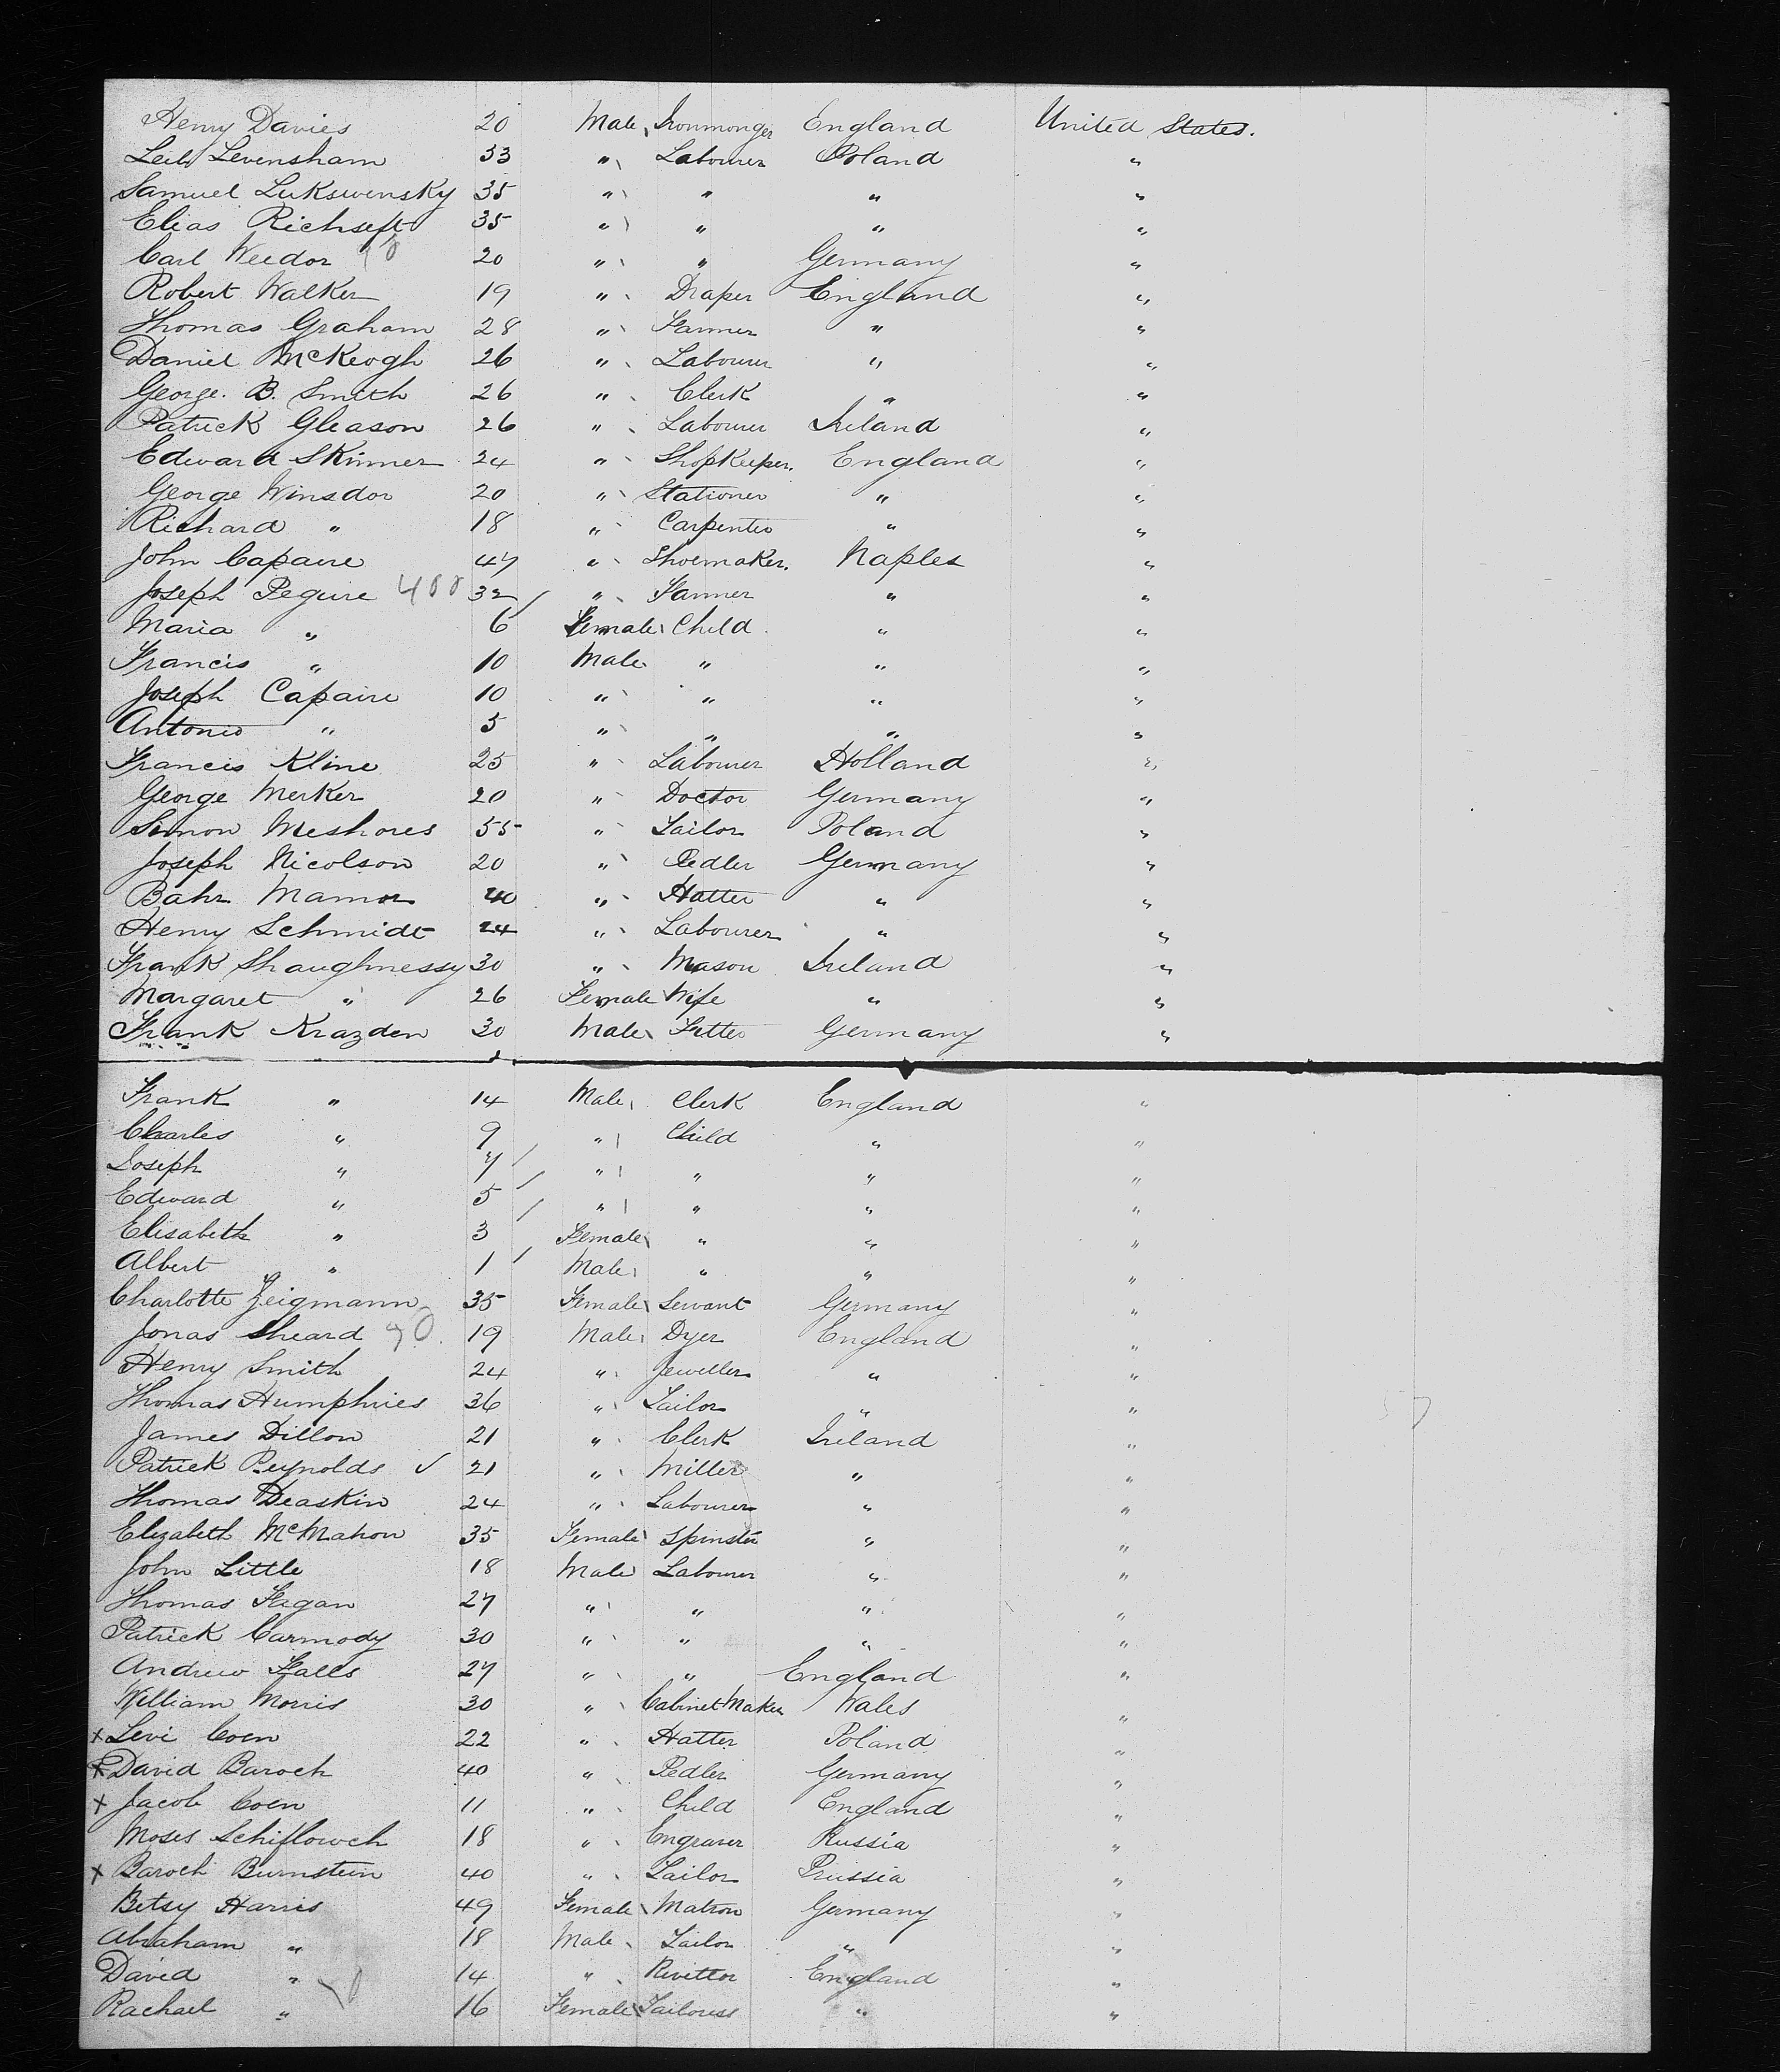 Henry Davies 20 Male Ironmonger England United States.
Leib Levensham 33 " Labourer Poland "
Samuel Lukswensky 35 " " " "
Elias Richseft 35 " " " "
Carl Weedor 20 " " Germany "
Robert Walker 19 " Draper England "
Thomas Graham 28 " Farmer " "
Daniel McKeogh 26 " Labourer " "
George. B. Smith 26 " Clerk " "
Patrick Gleason 26 " Labourer Ireland "
Edward Skinner 24 " Shopkeeper. England "
George Winsdor 20 " Stationer " "
Richard " 18 " Carpenter " "
John Capaire 47 " Shoemaker. Naples "
Joseph Pegure 400 32 " Farmer " "
Maria " 6 Female Child " "
Francis " 10 Male " " "
Joseph Capaire 10 " " " "
Antonio " 5 " " " "
Francis Kline 25 " Labourer Holland "
George Merker 20 " Doctor Germany "
Simon Meshores 55 " Tailor Poland "
Joseph Nicolson 20 " Pedler Germany "
Bahr Mamor 40 " Hatter " "
Henry Schmidt 24 " Labourer " "
Frank Shaughnessy 30 " Mason Ireland "
Margaret " 26 Female Wife " "
Frank Krazden 30 Male Fitter Germany "
Frank " 14 Male Clerk England "
Charles " 9 " Child " "
Joseph " 7 " " " "
Edward " 5 " " " "
Elisabeth " 3 Female " " "
Albert " 1 Male " " "
Charlotte Zeigmann 35 Female Servant Germany "
Jonas Sheard 19 Male Dyer England "
Henry Smith 24 " Jeweller " "
Thomas Humphries 36 " Tailor " "
James Dillon 21 " Clerk Ireland "
Patrick Reynolds ✓ 21 " Miller " "
Thomas Deaskin 24 " Labourer " "
Elizabeth McMahon 35 Female Spinster " "
John Little 18 Male Labourer " "
Thomas Fagan 27 " " " "
Patrick Carmody 30 " " " "
Andrew Falls 27 " " England "
William Morris 30 " Cabinet Maker Wales "
x Levi Coen 22 " Hatter Poland "
x David Baroch 40 " Pedler Germany "
x Jacob Coen 11 " Child England "
Moses Schiflowch 18 " Engraver Russia "
x Baroch Burnstein 40 " Tailor Prussia "
Betsy Harris 49 Female Matron Germany "
Abraham " 18 Male Tailor " "
David " 14 " Rivettor England "
Rachael " 16 Female Tailoress " "